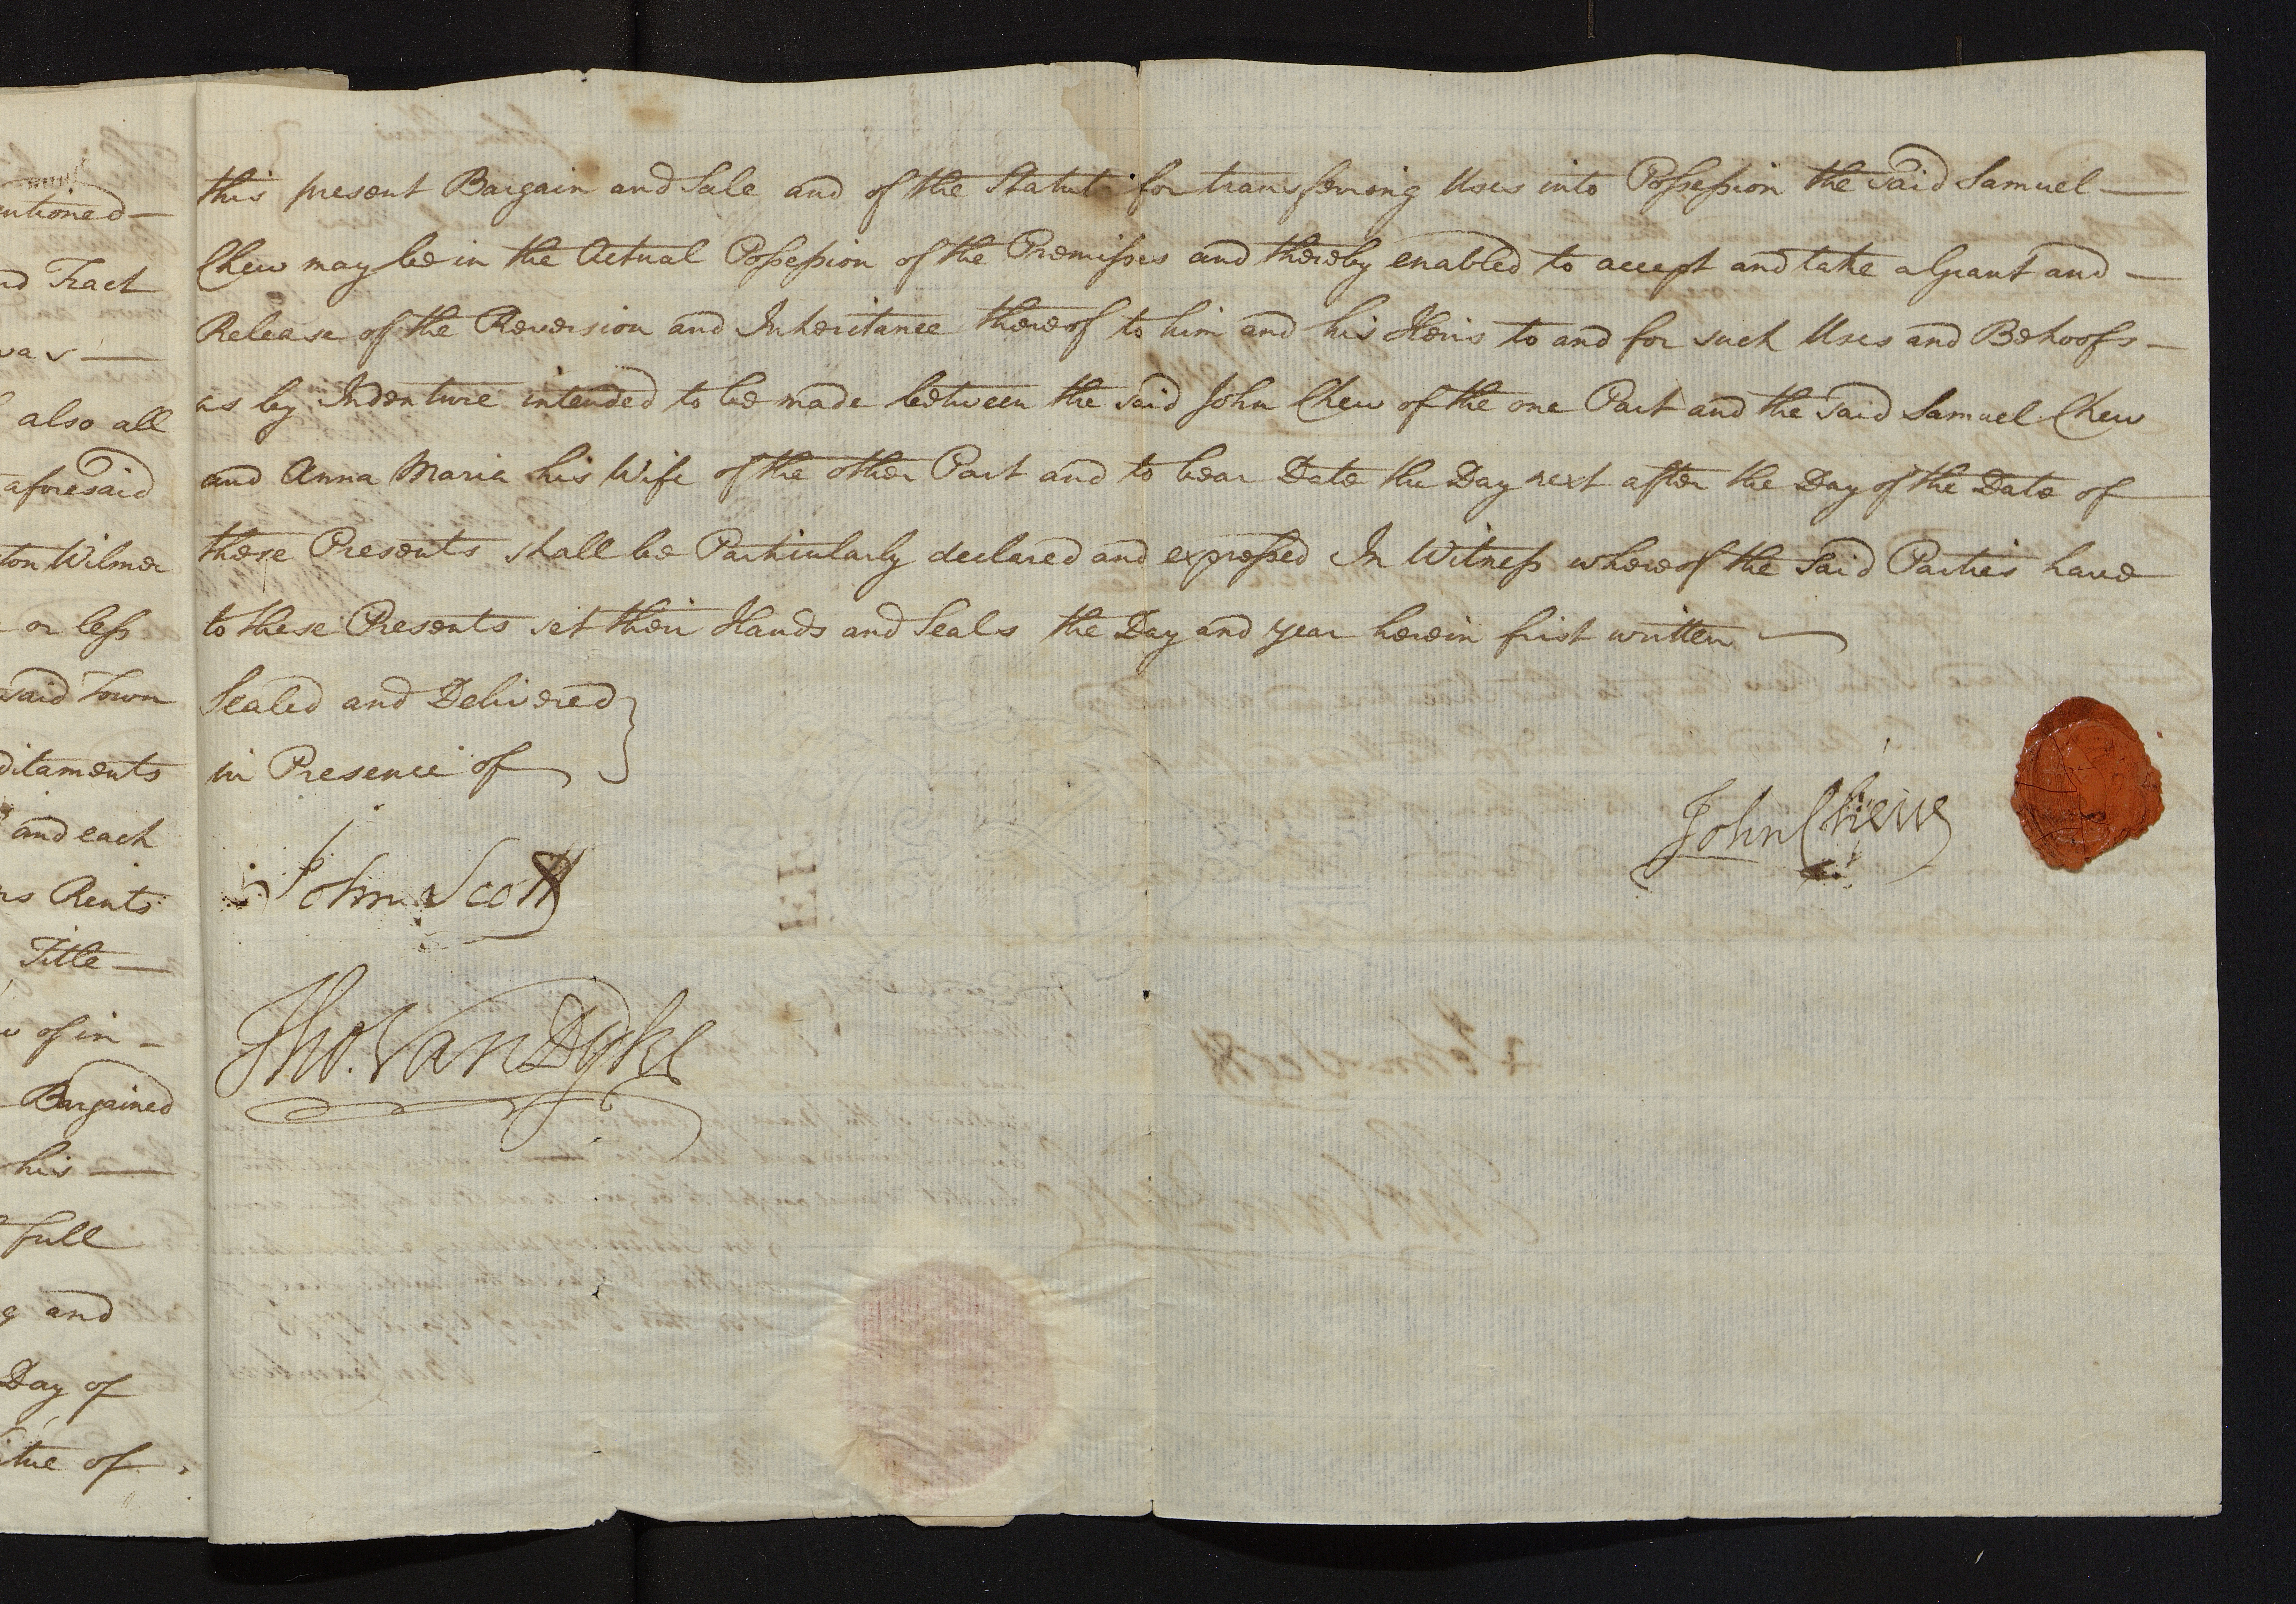 entioned —
nd Tract
was —
also all
aforesaid
ton Wilmer
or less
said Town
ditaments
and each
rs Rents
Title —
of in —
Bargained
his —
full
and
Day of
of
this present Bargain and Sale and of the Statute for transferring Uses into Possession the said Samuel —
Chew may be in the Actual Possession of the Premisses and thereby enabled to accept and take a Grant and —
Release of the Reversion and Inheritance thereof to him and his Heirs to and for such Uses and Behoofs —
as by Indenture intended to be made between the said John Chew of the one Part and the said Samuel Chew
and Anna Maria his Wife of the other Part and to bear Date the Day next after the Day of the Date of
these Presents shall be Particularly declared and expressed In Witness whereof the said Parties have
to these Presents set their Hands and Seals the Day and year herein first written —
Sealed and Delivered }
in Presence of
John Scott
Tho. Van Dyke
John Chew